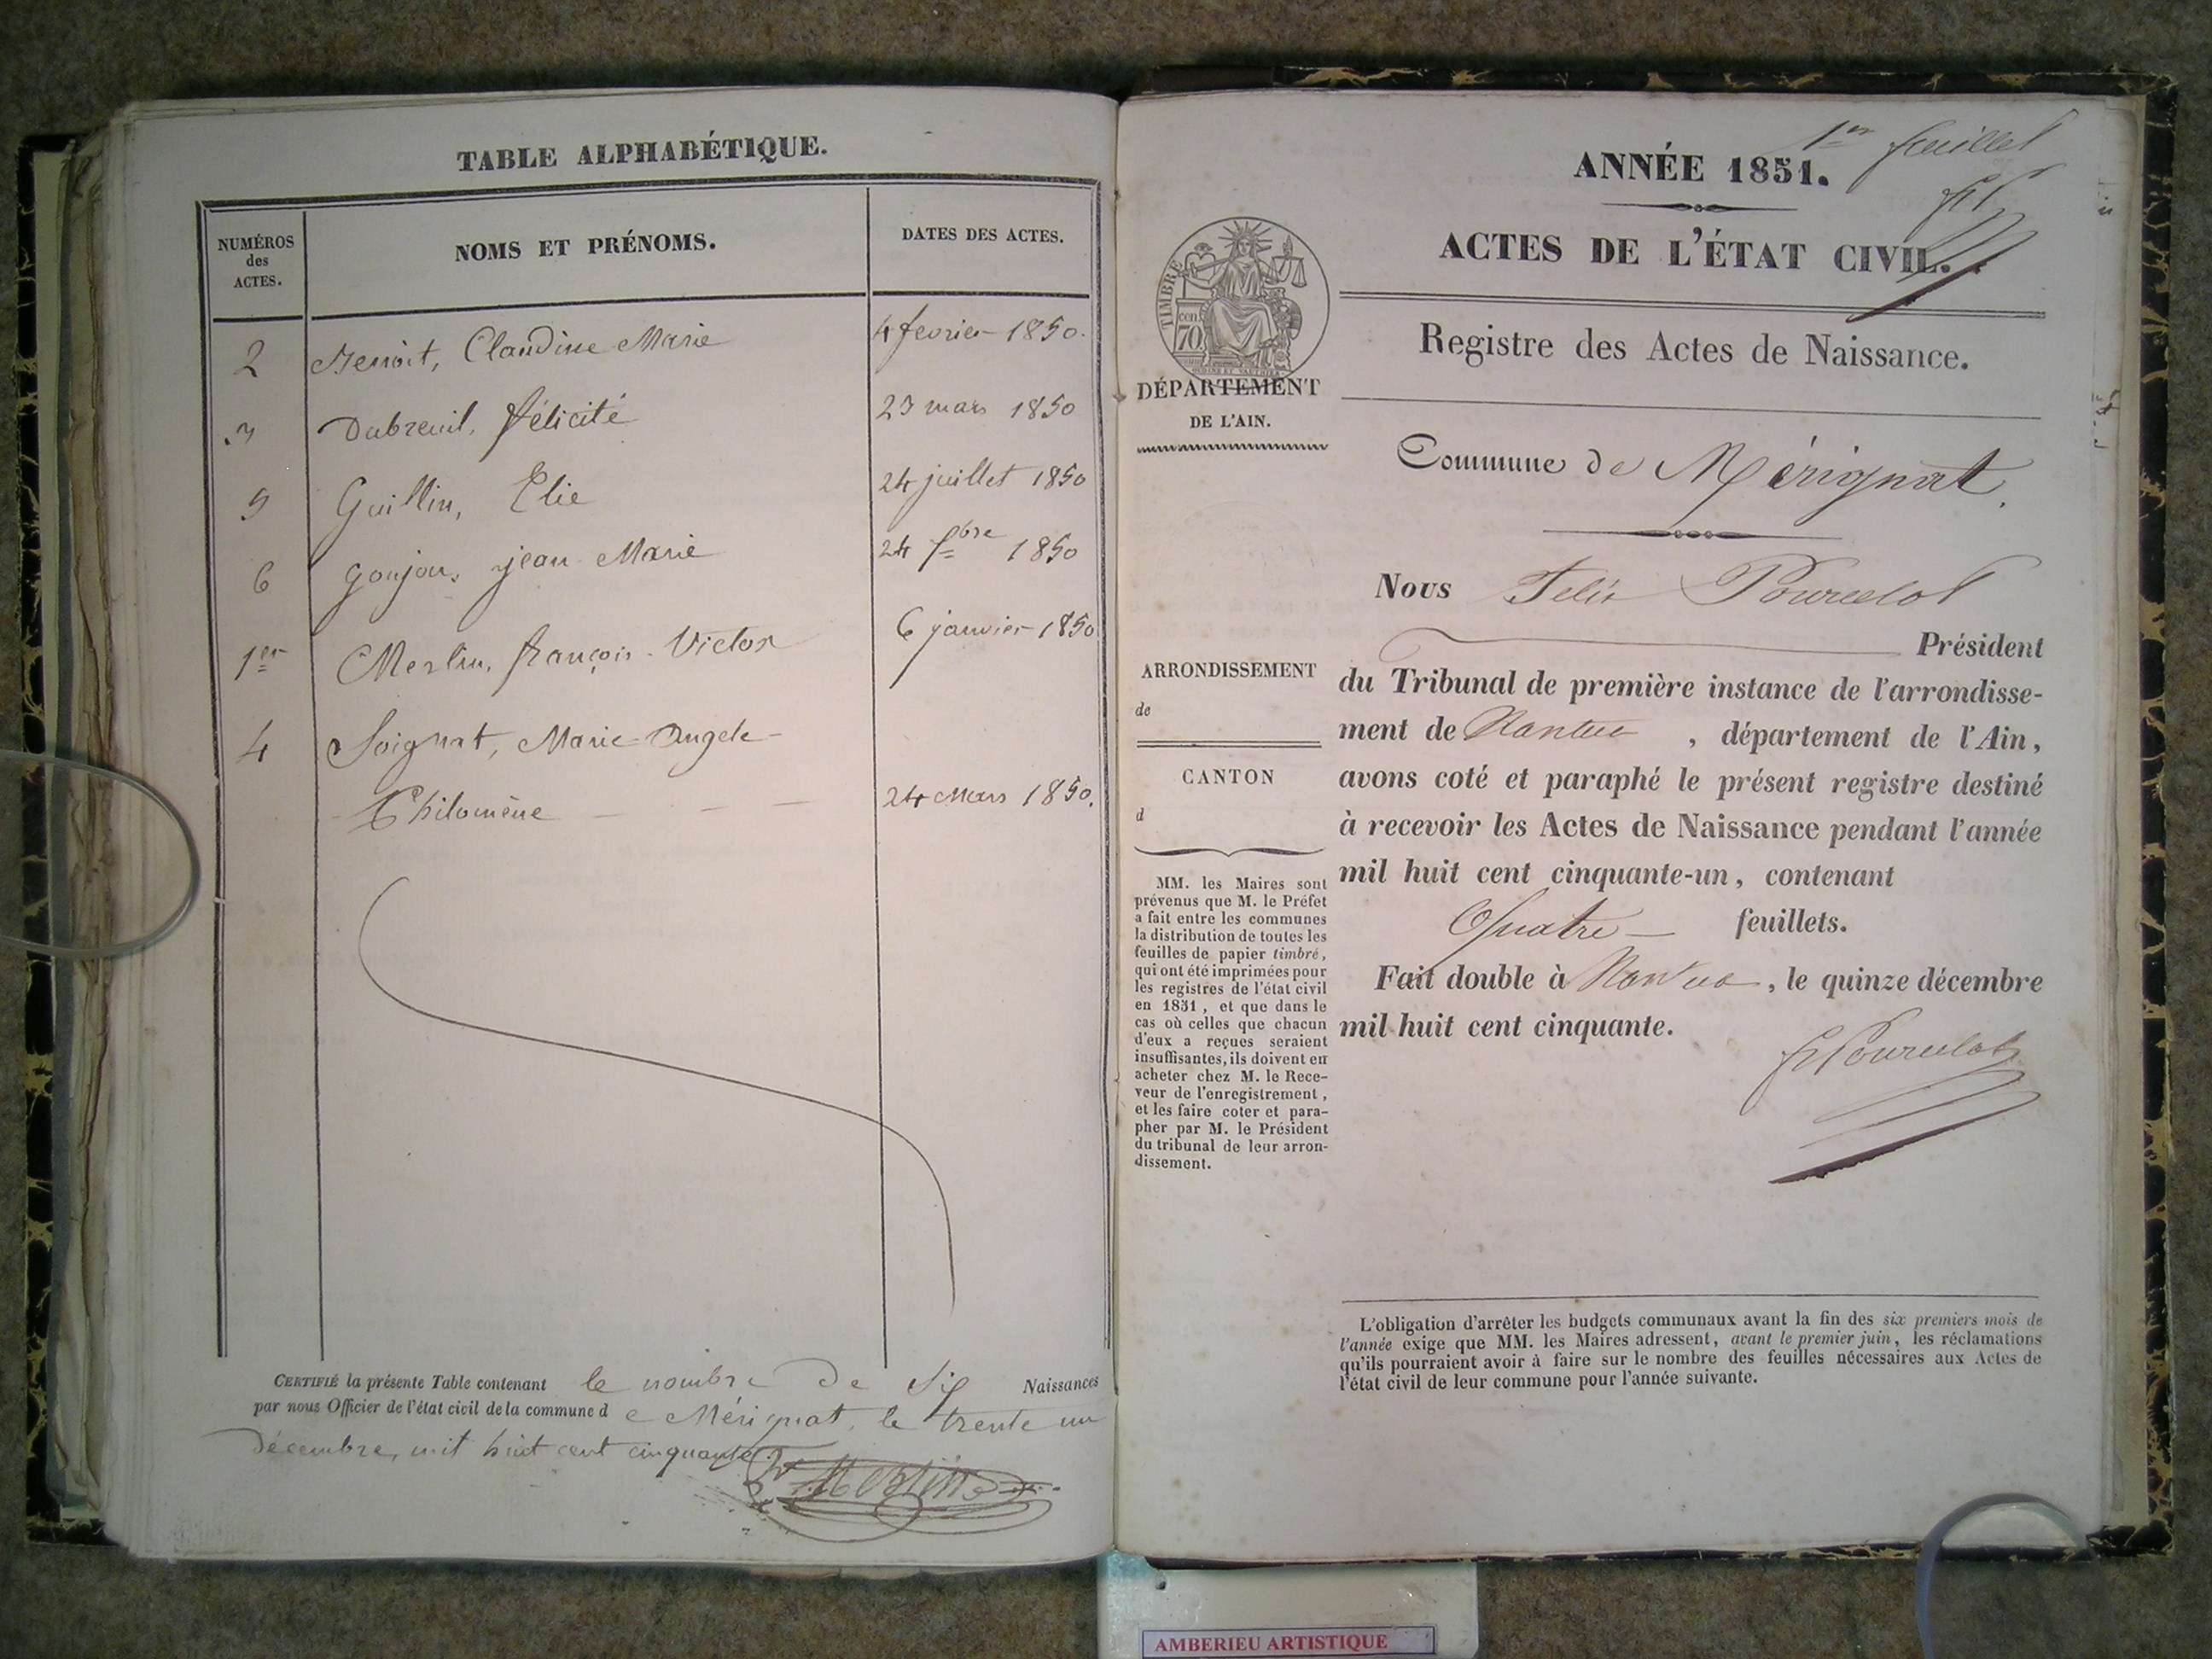 TABLE ALPHABÉTIQUE.
NUMÉROS
des
ACTES.
NOMS ET PRÉNOMS.
DATES DES ACTES.
2 Benoit, Claudine Marie 4 fevrier 1850.
3 Dubreuil, Félicité 23 mars 1850
5 Guillin, Elie 24 juillet 1850
6 Goujon, jean Marie 24 7bre 1850
1er Merlin, françois-Victor 6 janvier 1850
4 Soignat, Marie-Angele-
Philomène — — — 24 Mars 1850.
CERTIFIÉ la présente Table contenant le nombre de Six Naissances
par nous Officier de l'état civil de la commune d e Mérignat, le trente un
Décembre, mil huit cent cinquante.
Merlin
1er feuillet
ANNÉE 1851.
ACTES DE L'ÉTAT CIVIL.
TIMBRE
70 cen.
Registre des Actes de Naissance.
DÉPARTEMENT
DE L'AIN.
Commune de Mérignat.
Nous Félix Pourcelot
Président
du Tribunal de première instance de l'arrondisse-
ment de Nantua, département de l'Ain,
avons coté et paraphé le présent registre destiné
à recevoir les Actes de Naissance pendant l'année
mil huit cent cinquante-un, contenant
Quatre — feuillets.
Fait double à Nantua, le quinze décembre
mil huit cent cinquante.
F Pourcelot
ARRONDISSEMENT
de
CANTON
d
MM. les Maires sont
prévenus que M. le Préfet
a fait entre les communes
la distribution de toutes les
feuilles de papier timbré,
qui ont été imprimées pour
les registres de l'état civil
en 1851, et que dans le
cas où celles que chacun
d'eux a reçues seraient
insuffisantes, ils doivent en
acheter chez M. le Rece-
veur de l'enregistrement,
et les faire coter et para-
pher par M. le Président
du tribunal de leur arron-
dissement.
L'obligation d'arrêter les budgets communaux avant la fin des six premiers mois de
l'année exige que MM. les Maires adressent, avant le premier juin, les réclamations
qu'ils pourraient avoir à faire sur le nombre des feuilles nécessaires aux Actes de
l'état civil de leur commune pour l'année suivante.
AMBERIEU ARTISTIQUE